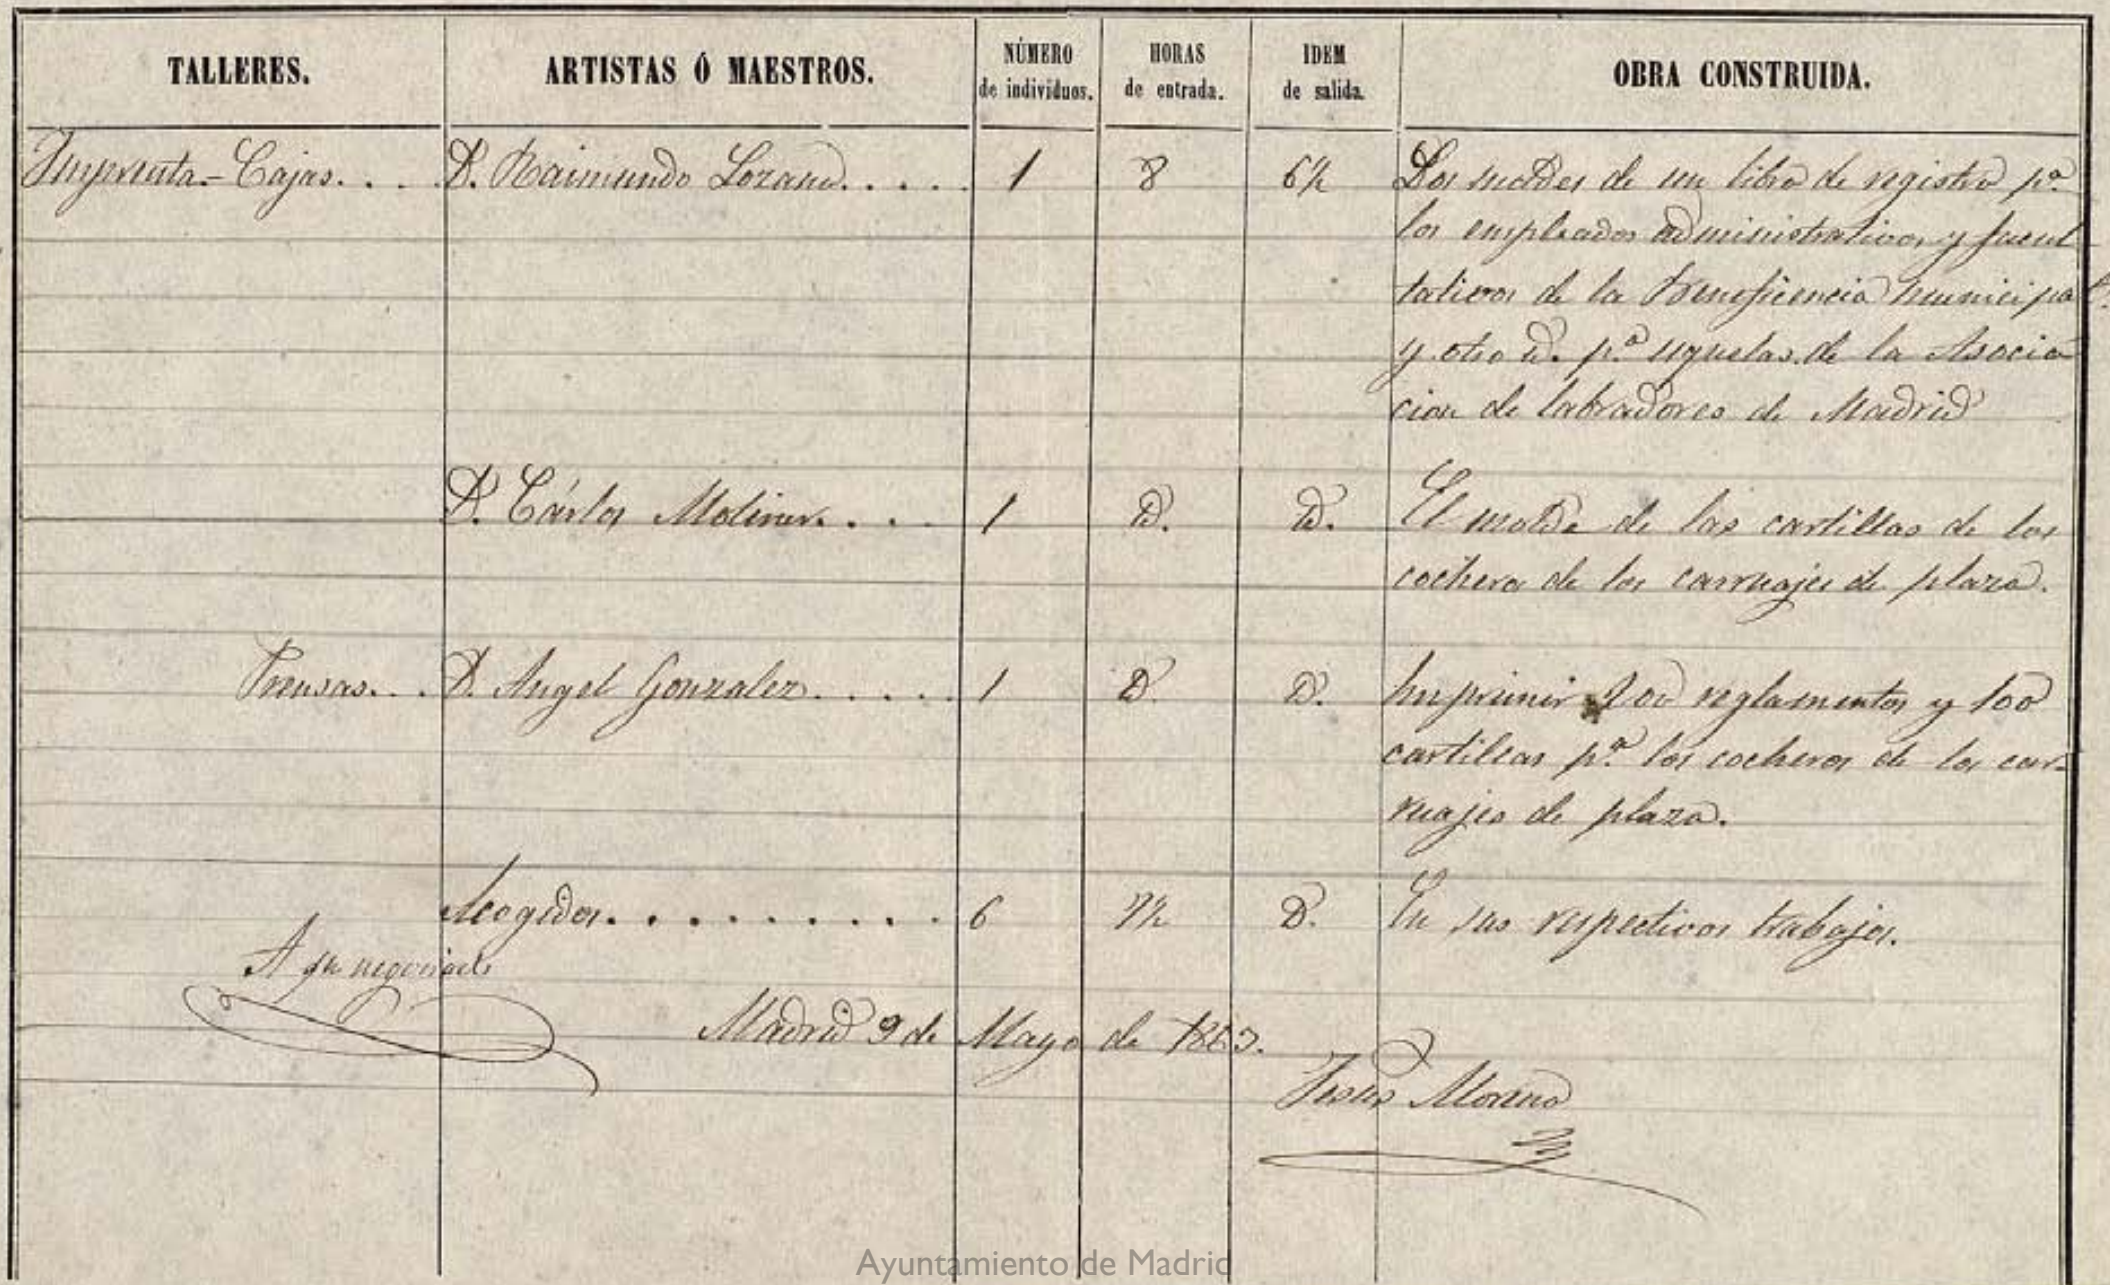 TALLERES. ARTISTAS Ó MAESTROS. NÚMERO de individuos. HORAS de entrada. IDEM de salida. OBRA CONSTRUIDA.
Imprenta.- Cajas. . . . D. Raimundo Lozano. . . . . 1 8 6½ Dos moldes de un libro de registro p.ª
los empleados administrativos y facul
tativos de la Beneficencia municipal.
y otro id. p.ª esquelas de la Asocia
cion de labradores de Madrid
D. Cárlos Moliner. . . . 1 id. id. El molde de las cartillas de los
cocheros de los carruajes de plaza.
Prensas. . . D. Angel Gonzalez. . . . . 1 id. id. Imprimir 200 reglamentos y 100
cartillas p.ª los cocheros de los car-
ruajes de plaza.
Acogidos. . . . . . . . . . 6 7½ id. En sus respectivos trabajos.
A su negociado
Madrid 9 de Mayo de 1863.
Jesus Moreno
Ayuntamiento de Madrid